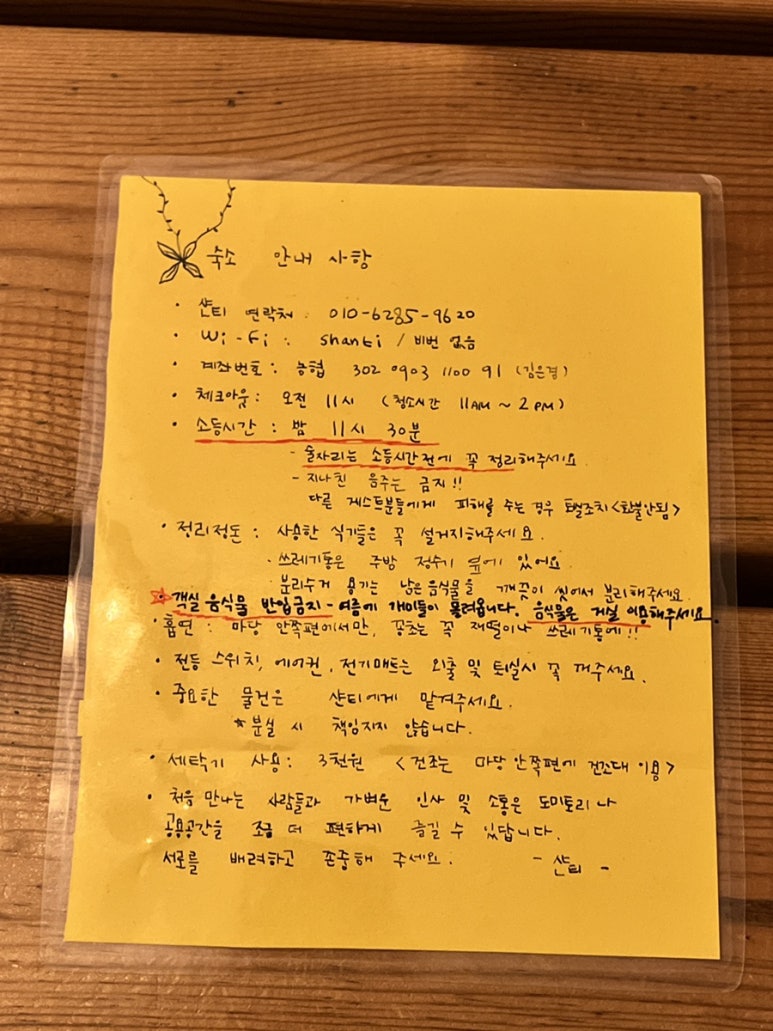 숙소 안내 사항
· 샨티 연락처 : 010-6285-9620
· Wi-Fi : shanti / 비번 없음
· 계좌번호 : 농협 302 0903 1100 91 (김은경)
· 체크아웃 : 오전 11시 (청소시간 11AM ~ 2PM)
· 소등시간 : 밤 11시 30분
- 술자리는 소등시간전에 꼭 정리해주세요.
- 지나친 음주는 금지!!
다른 게스트분들에게 피해를 주는 경우 퇴실조치 <환불안됨>
· 정리정돈 : 사용한 식기들은 꼭 설거지해주세요.
· 쓰레기통은 주방 정수기 옆에 있어요.
· 분리수거 용기는 남은 음식물을 깨끗이 씻어서 분리해주세요.
☆· 객실 음식물 반입금지 - 여름에 개미들이 몰려옵니다. 음식물은 거실 이용해주세요.
· 흡연 : 마당 안쪽편에서만, 꽁초는 꼭 재떨이나 쓰레기통에!!
· 전등 스위치, 에어컨, 전기매트는 외출 및 퇴실시 꼭 꺼주세요.
· 중요한 물건은 샨티에게 맡겨주세요.
* 분실 시 책임지지 않습니다.
· 세탁기 사용 : 3천원 <건조는 마당 안쪽편에 건조대 이용>
· 처음 만나는 사람들과 가벼운 인사 및 소통은 도미토리 나
공용공간을 조금 더 편하게 즐길 수 있답니다.
서로를 배려하고 존중해 주세요. - 샨티 -